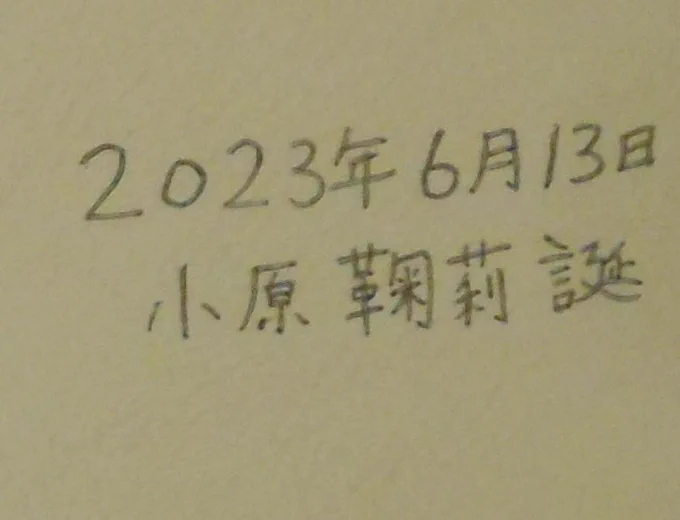 2023年6月13日
小原鞠莉誕